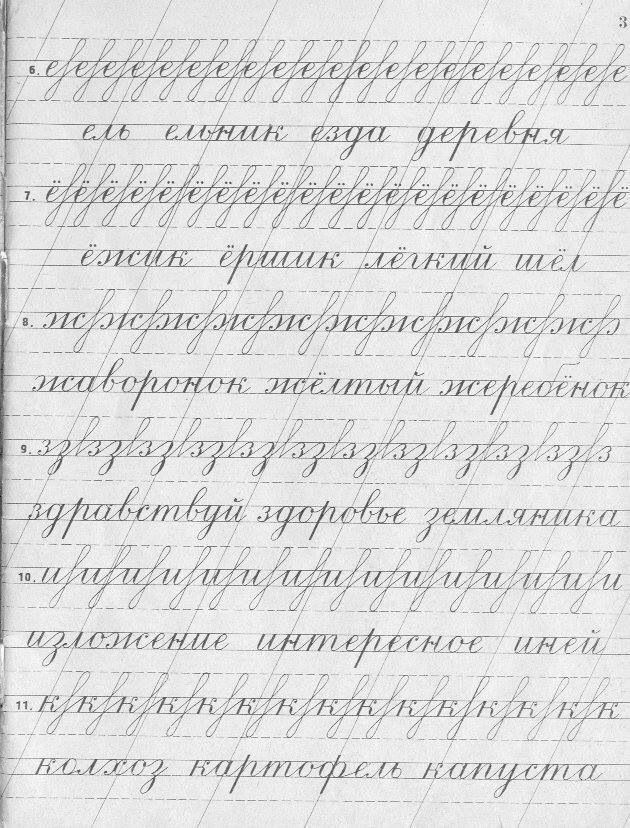 3
6. е е е е е е е е е е е е е е е е е е е е е
ель ельник езда деревня
7. ё ё ё ё ё ё ё ё ё ё ё ё ё ё ё ё ё ё ё ё ё
ёжик ёршик лёгкий шёл
8. ж ж ж ж ж ж ж ж ж ж ж
жаворонок жёлтый жеребёнок
9. з з з з з з з з з з з з з з
здравствуй здоровье земляника
10. и и и и и и и и и и и и и и и
изложение интересное иней
11. к к к к к к к к к к к к к к к
колхоз картофель капуста